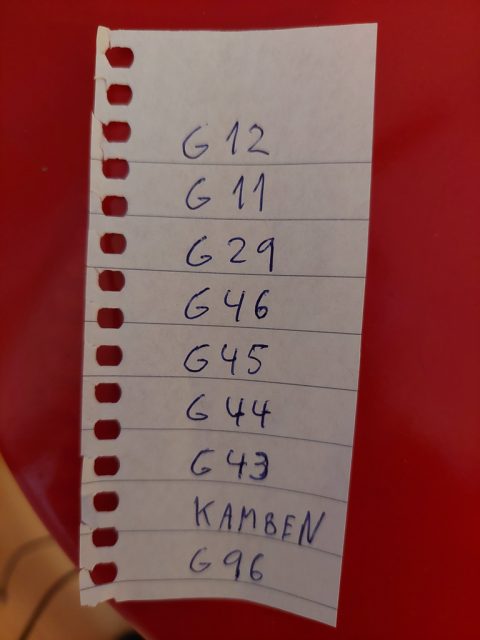 G 12
G 11
G 29
G 46
G 45
G 44
G 43
KAMBEN
G 96